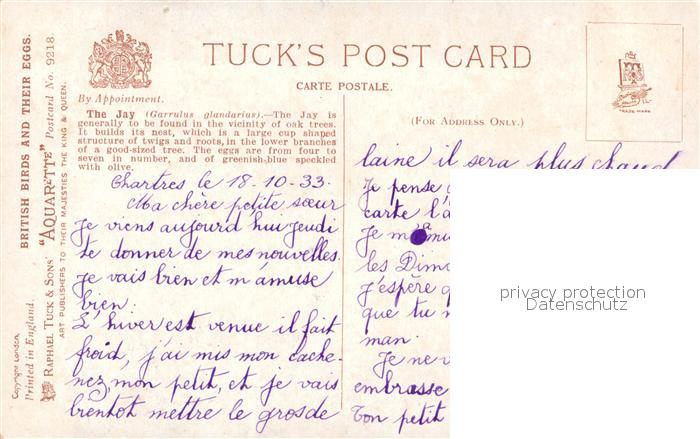 BRITISH BIRDS AND THEIR EGGS.
"AQUARETTE" Postcard No. 9218.
Copyright London
Printed in England.
RAPHAEL TUCK & SONS'
ART PUBLISHERS TO THEIR MAJESTIES THE KING & QUEEN.
TUCK'S POST CARD
CARTE POSTALE.
By Appointment.
(FOR ADDRESS ONLY.)
TRADE MARK
The Jay (Garrulus glandarius).—The Jay is
generally to be found in the vicinity of oak trees.
It builds its nest, which is a large cup shaped
structure of twigs and roots, in the lower branches
of a good-sized tree. The eggs are from four to
seven in number, and of greenish blue speckled
with olive.
Chartres le 18-10-33.
Ma chère petite sœur
Je viens aujourd hui jeudi
te donner de mes nouvelles.
je vais bien et m'amuse
bien.
L'hiver est venue il fait
froid, j'ai mis mon cache-
nez, mon petit, et je vais
bientot mettre le gros de
laine il sera plus chaud
Je pense
carte l'a
Je m'amu
les Dim
j'espère q
que tu
man.
Je ne v
embrasse
Ton petit
privacy protection
Datenschutz